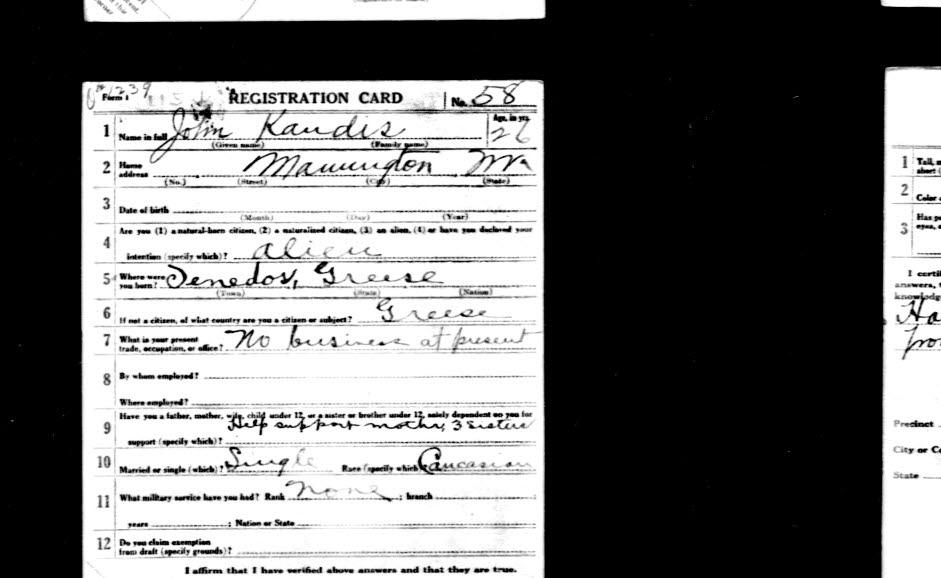 Form 1 1239 REGISTRATION CARD No. 58
1 Name in full John Kandis Age, in yrs. 26
(Given name) (Family name)
2 Home address Mannington W Va
(No.) (Street) (City) (State)
3 Date of birth
(Month) (Day) (Year)
Are you (1) a natural-born citizen, (2) a naturalized citizen, (3) an alien, (4) or have you declared your
4 intention (specify which)? alien
5 Where were you born? Tenedos, Greese
(Town) (State) (Nation)
6 If not a citizen, of what country are you a citizen or subject? Greese
7 What is your present trade, occupation, or office? No business at present
8 By whom employed?
Where employed?
9 Have you a father, mother, wife, child under 12, or a sister or brother under 12, solely dependent on you for
support (specify which)? Help support mother, 3 sisters
10 Married or single (which)? Single Race (specify which)? Caucasian
11 What military service have you had? Rank None ; branch
years ; Nation or State
12 Do you claim exemption from draft (specify grounds)?
I affirm that I have verified above answers and that they are true.
1 Tall,
short
2 Color
3 Has
eyes,
I certi
answers,
knowledge
Precinct
City or Co
State